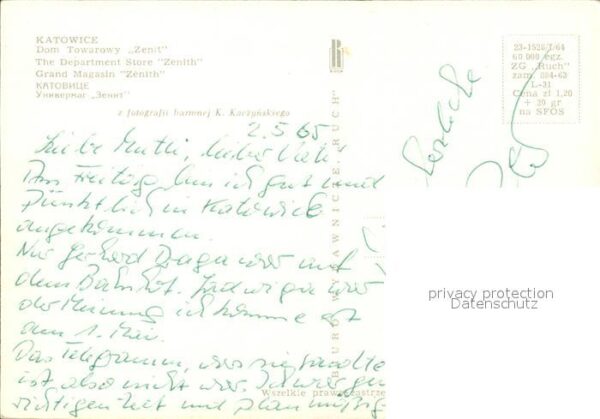 KATOWICE
Dom Towarowy „Zenit"
The Department Store "Zenith"
Grand Magasin "Zenith"
КАТОВИЦЕ
Универмаг „Зенит"
z fotografii barwnej K. Kaczyńskiego
BIURO WYDAWNICZE „RUCH"
23-1528/I/64
60 000 egz.
ZG „Ruch"
zam. 694-63
L-31
Cena zł 1,20
+ 30 gr
na SFOS
2.5.65
Liebe Mutti, lieber Vati!
Am Freitag bin ich gut und
pünktlich in Katowice
angekommen.
Nur Gerhard war auf
dem Bahnhof. Jadwiga war
der Meinung ich komme erst
am 1. Mai.
Das Telegramm, was sie sandte
ist also nicht war. Ich war zur
richtigen Zeit und planmäßig
Herzliche
Wszelkie prawa zastrze
privacy protection
Datenschutz